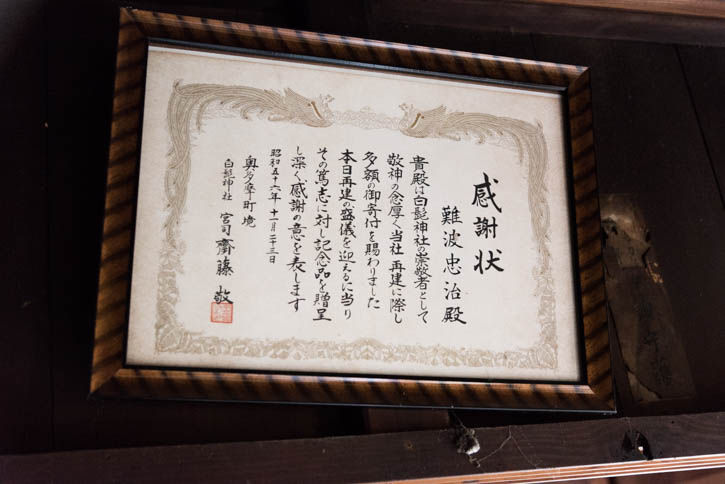 感謝状
難波忠治殿
貴殿は白髭神社の崇敬者として
敬神の念厚く当社再建に際し
多額の御寄付を賜わりました
本日再建の盛儀を迎えるに当り
その篤志に対し記念品を贈呈
し深く感謝の意を表します
昭和五十六年十一月二十三日
奥多摩町境
白髭神社 宮司 齋藤 敬